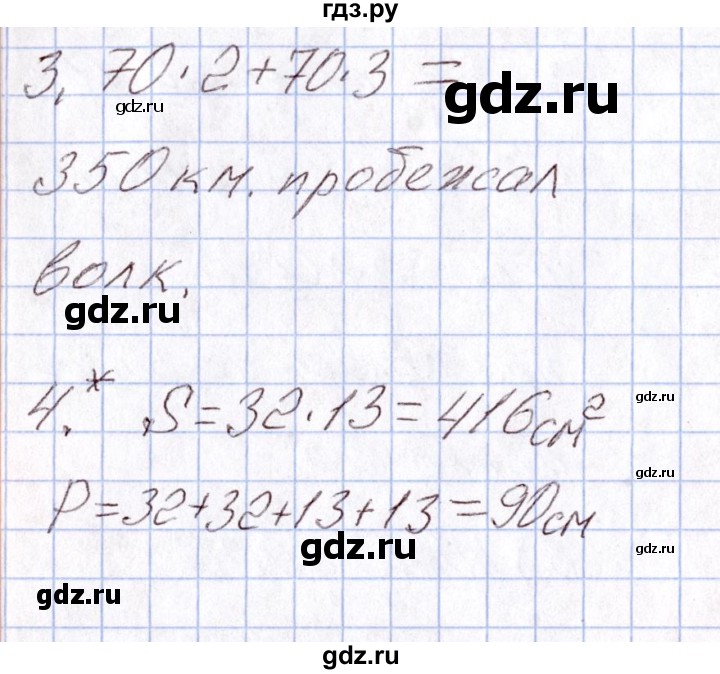 гдз.ру
3. 70·2+70·3 =
gdz.ru
gdz.ru
350 км. пробежал
gdz.ru
волк.
gdz.ru
4.* S=32·13=416см²
gdz.ru
gdz.ru
P=32+32+13+13=90см
gdz.ru
gdz.ru
gdz.ru
gdz.ru